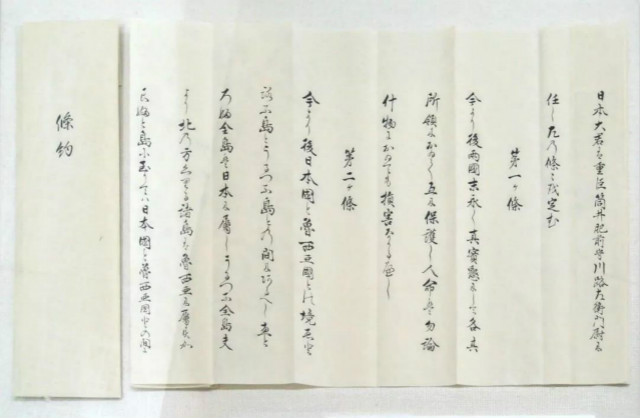 日本大君は重臣筒井肥前守川路左衛門尉に
任し左の條々を定む
第一ヶ條
今より後両國末永く真實懇にして各其
所領において互に保護し人命は勿論
什物においても損害なかるへし
第二ヶ條
今より後日本國と魯西亜國との境ゑと
ろふ島とうるつふ島との間にあるへしゑと
ろふ全島は日本に属しうるつふ全島夫
より北の方くりる諸島は魯西亜に属すか
らふと島に至りては日本國と魯西亜國との間に
條約